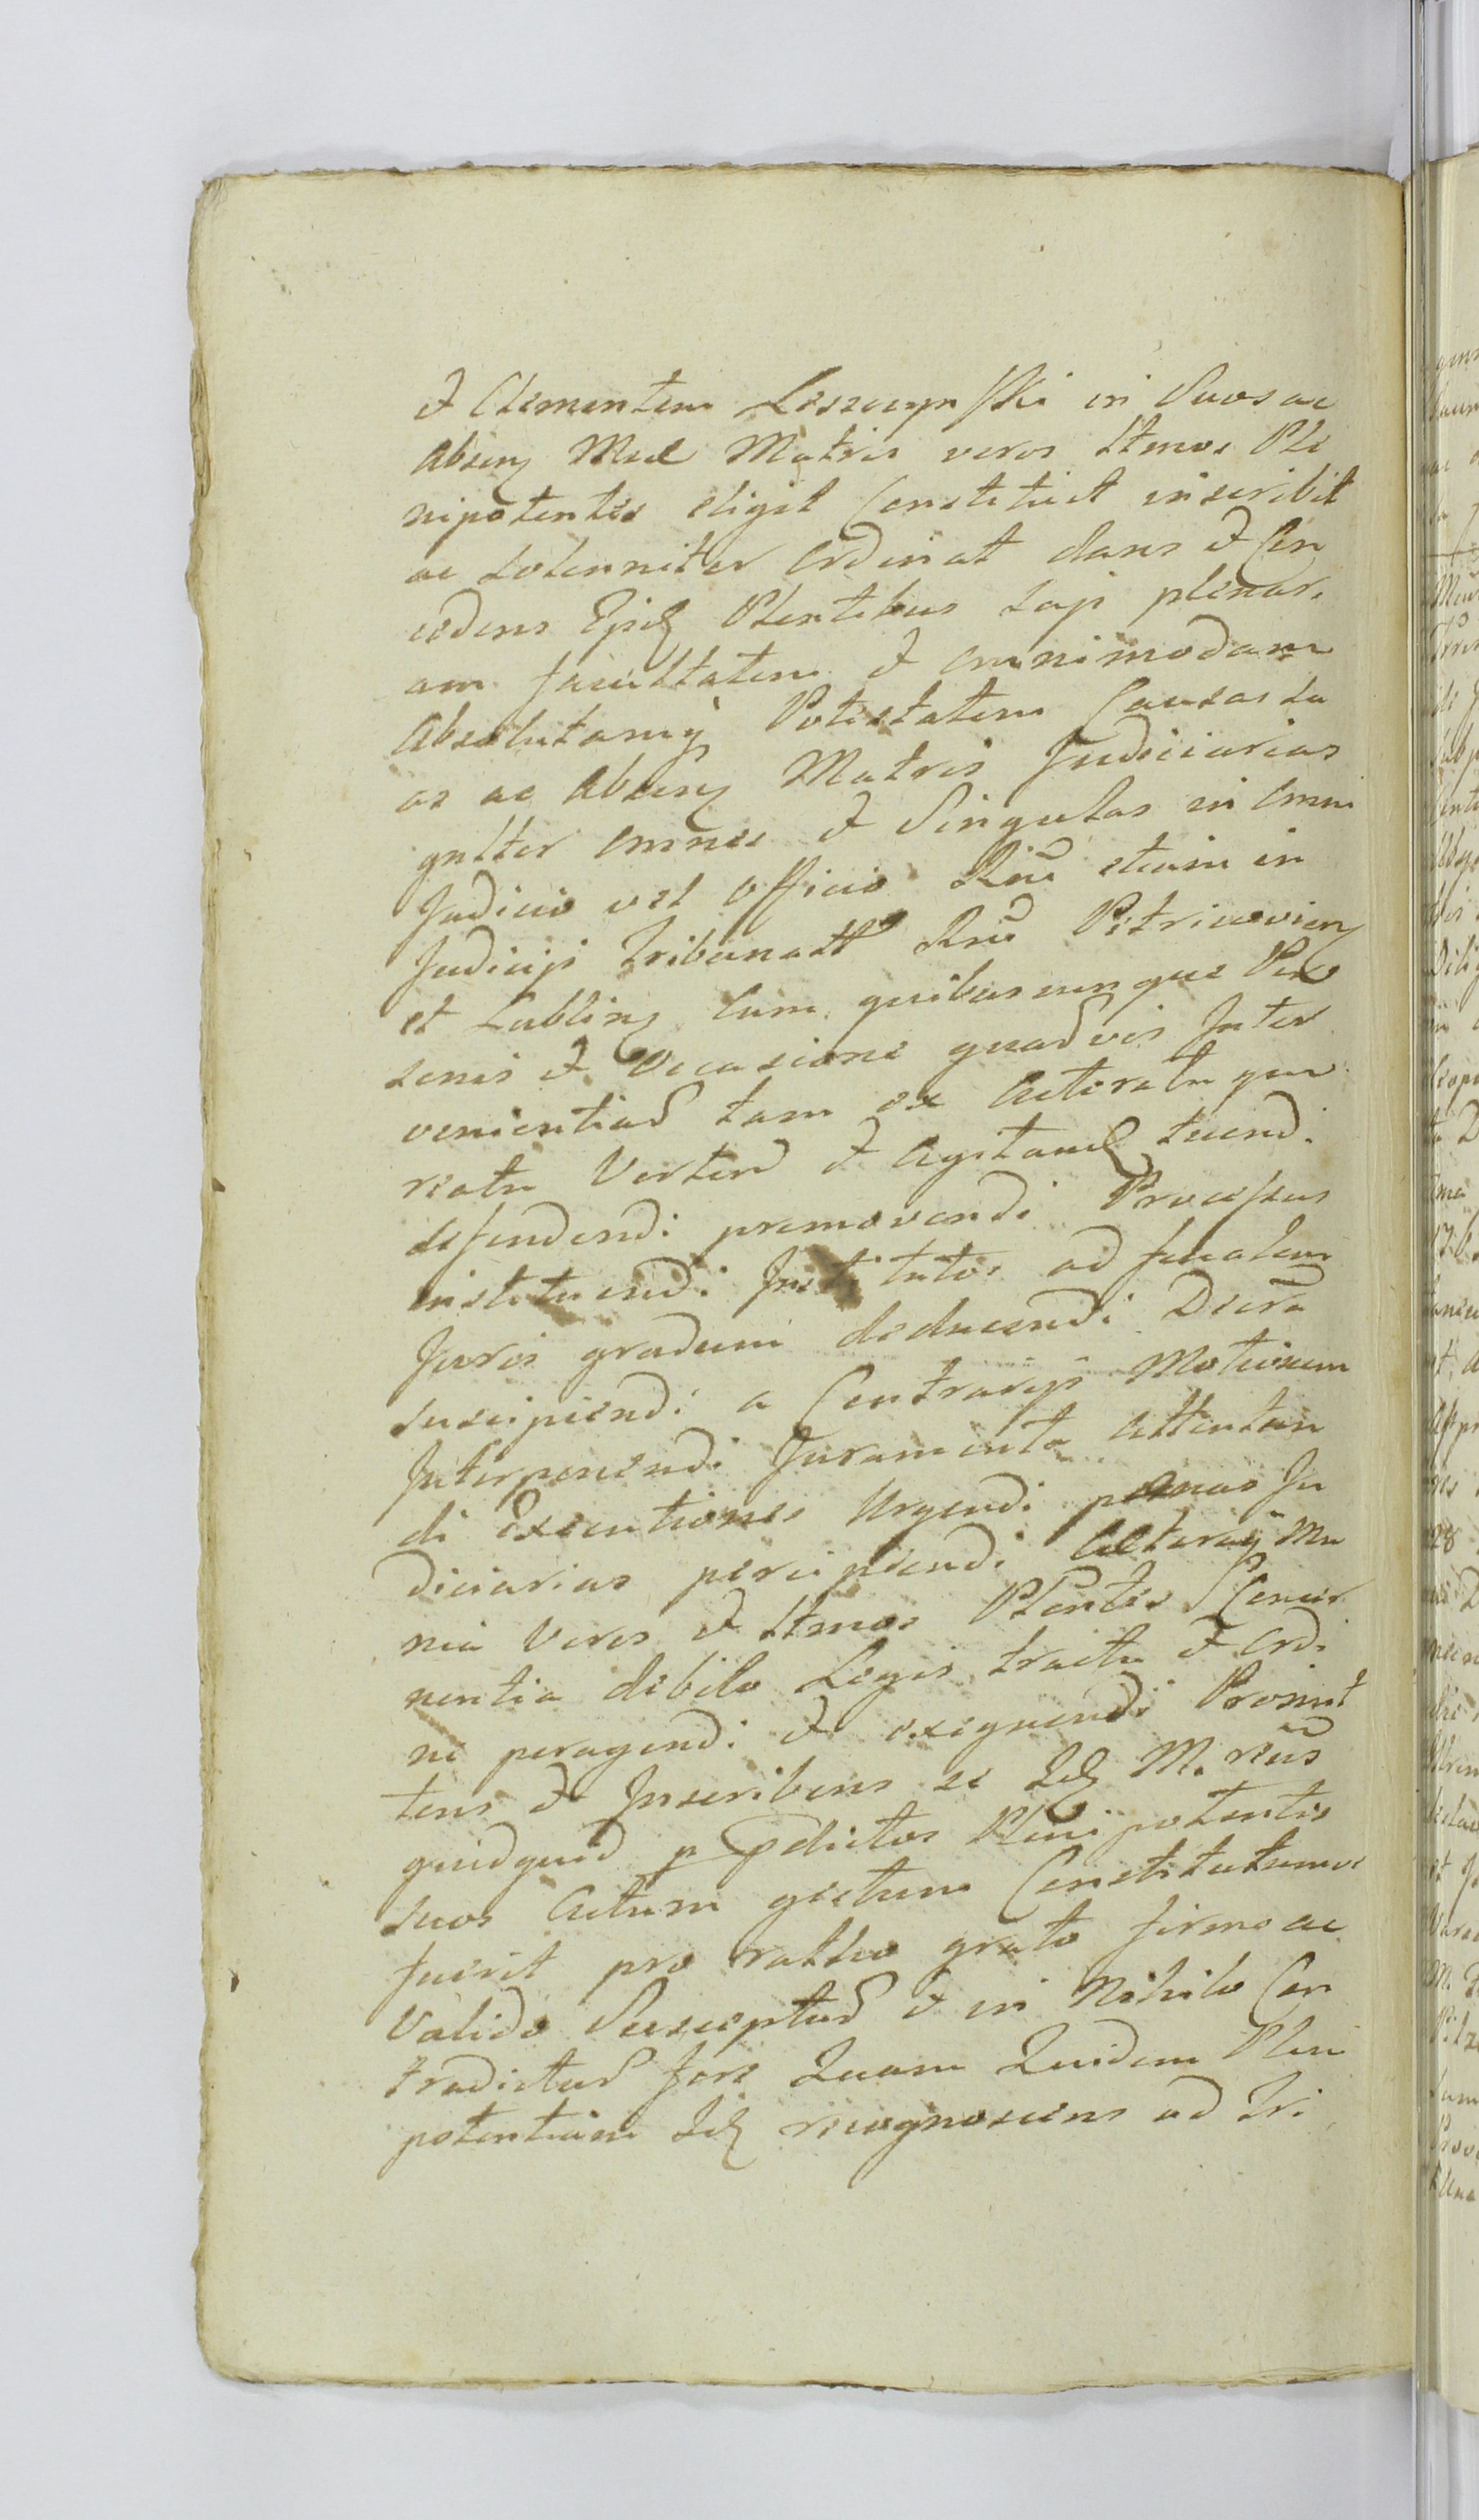 et Clementem Leszczynski in Suos ac
absenᷤ Mul Matris veros Ltmos Ple
nipotentes eligit Constituit inscribit
ac solenniter Ordinat dans et Con
cedens Ejsdᷤ Plentibus Suj plenar.
am facultatem et omnimodam
absolutamq Potestatem Causas su
as ac absenᷤ Matris Judiciarias
gnlter omnes et Singulas in omni
Judicio vel Officio Rni etiam in
Judicijs Tribunall Rni Petricovienᷤ
et Lublinᷤ cum quibuscunque Per
sonis et Occasione quadvis Inter
venientiad tam ex Actoratu qm
reatu Vertend et agitandᷤ tuend.
defendendi promovendi Processus
instituendi Institutos ad finalem
Juris gradum deducendi Decra
suscipiendi a Contrarys Motionem
Interponendi Juramenta attentan
di Executiones Urgendi pænas Ju
diciarias percipiendi Cæteraq Mu
nia Veros et Ltmos Plentes Concer
nentia debito Legis tractu et ordi
ne peragendi et exequendi Promit
tens et Inscribens se Idᷤ M. rens
quidquid p pdictos Plenipotentes
suos Actum gestum Constitutumve
fuerit pro ratho grato firmo ac
valido Suscepturᷤ et in Nihilo Con
tradicturᷤ fore Quam Quidem Pleni
potentiam Idᷤ recognoscens ad Tri